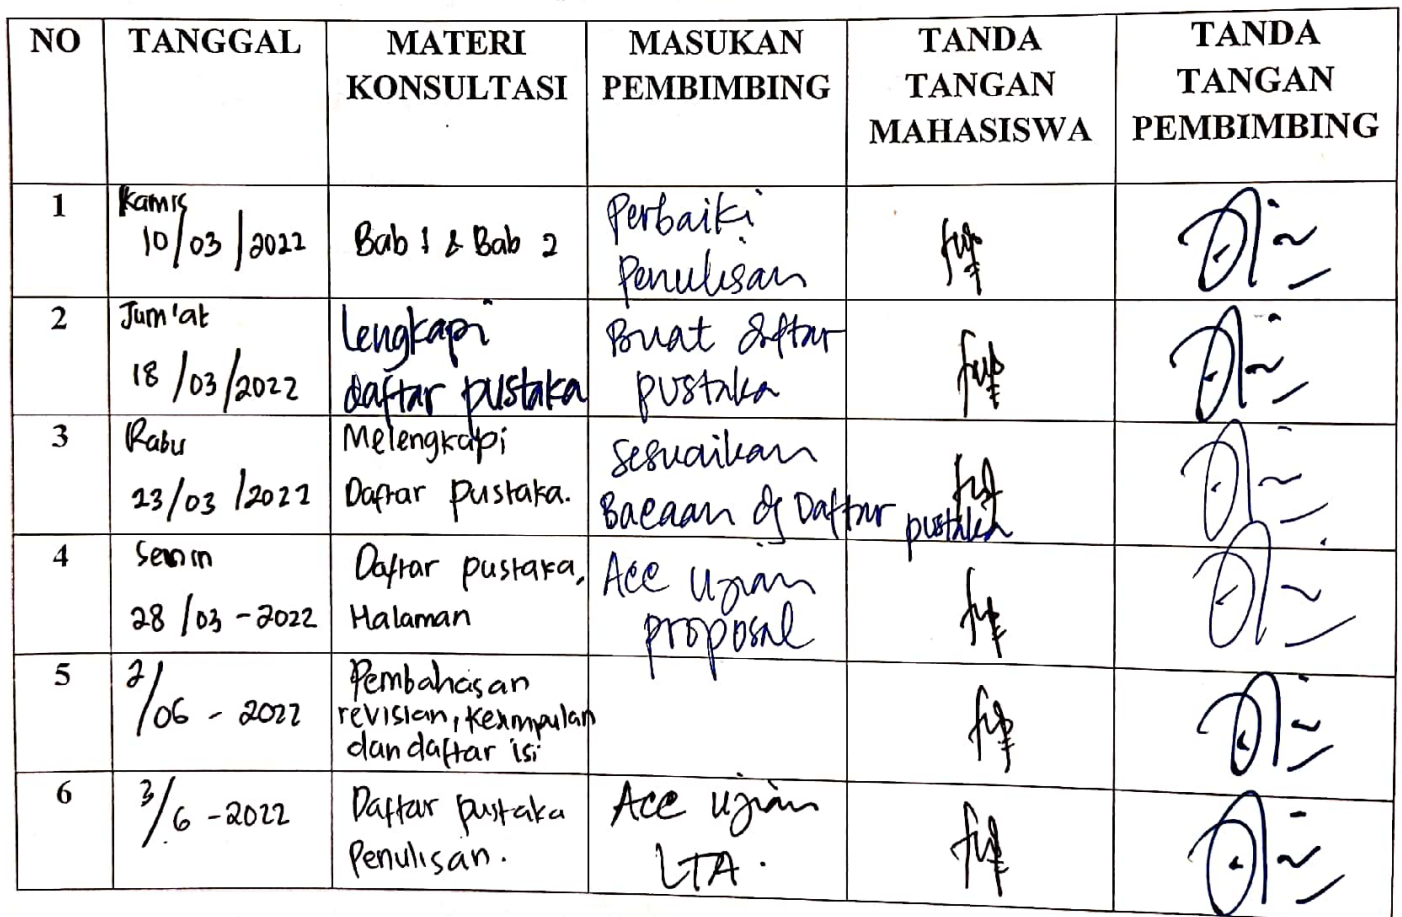 NO TANGGAL MATERI KONSULTASI MASUKAN PEMBIMBING TANDA TANGAN MAHASISWA TANDA TANGAN PEMBIMBING
1
Kamis
10/03/2022
Bab 1 & Bab 2
Perbaiki
Penulisan
2
Jum'at
18/03/2022
Lengkapi
daftar pustaka
Buat daftar
pustaka
3
Rabu
23/03/2022
Melengkapi
Daftar pustaka.
Sesuaikan
Bacaan dg Daftar pustaka
4
Senin
28/03-2022
Daftar pustaka,
Halaman
Acc Ujian
proposal
5
2/06-2022
Pembahasan
revisian, kesimpulan
dan daftar isi
6
3/6-2022
Daftar pustaka
Penulisan.
Acc Ujian
LTA.